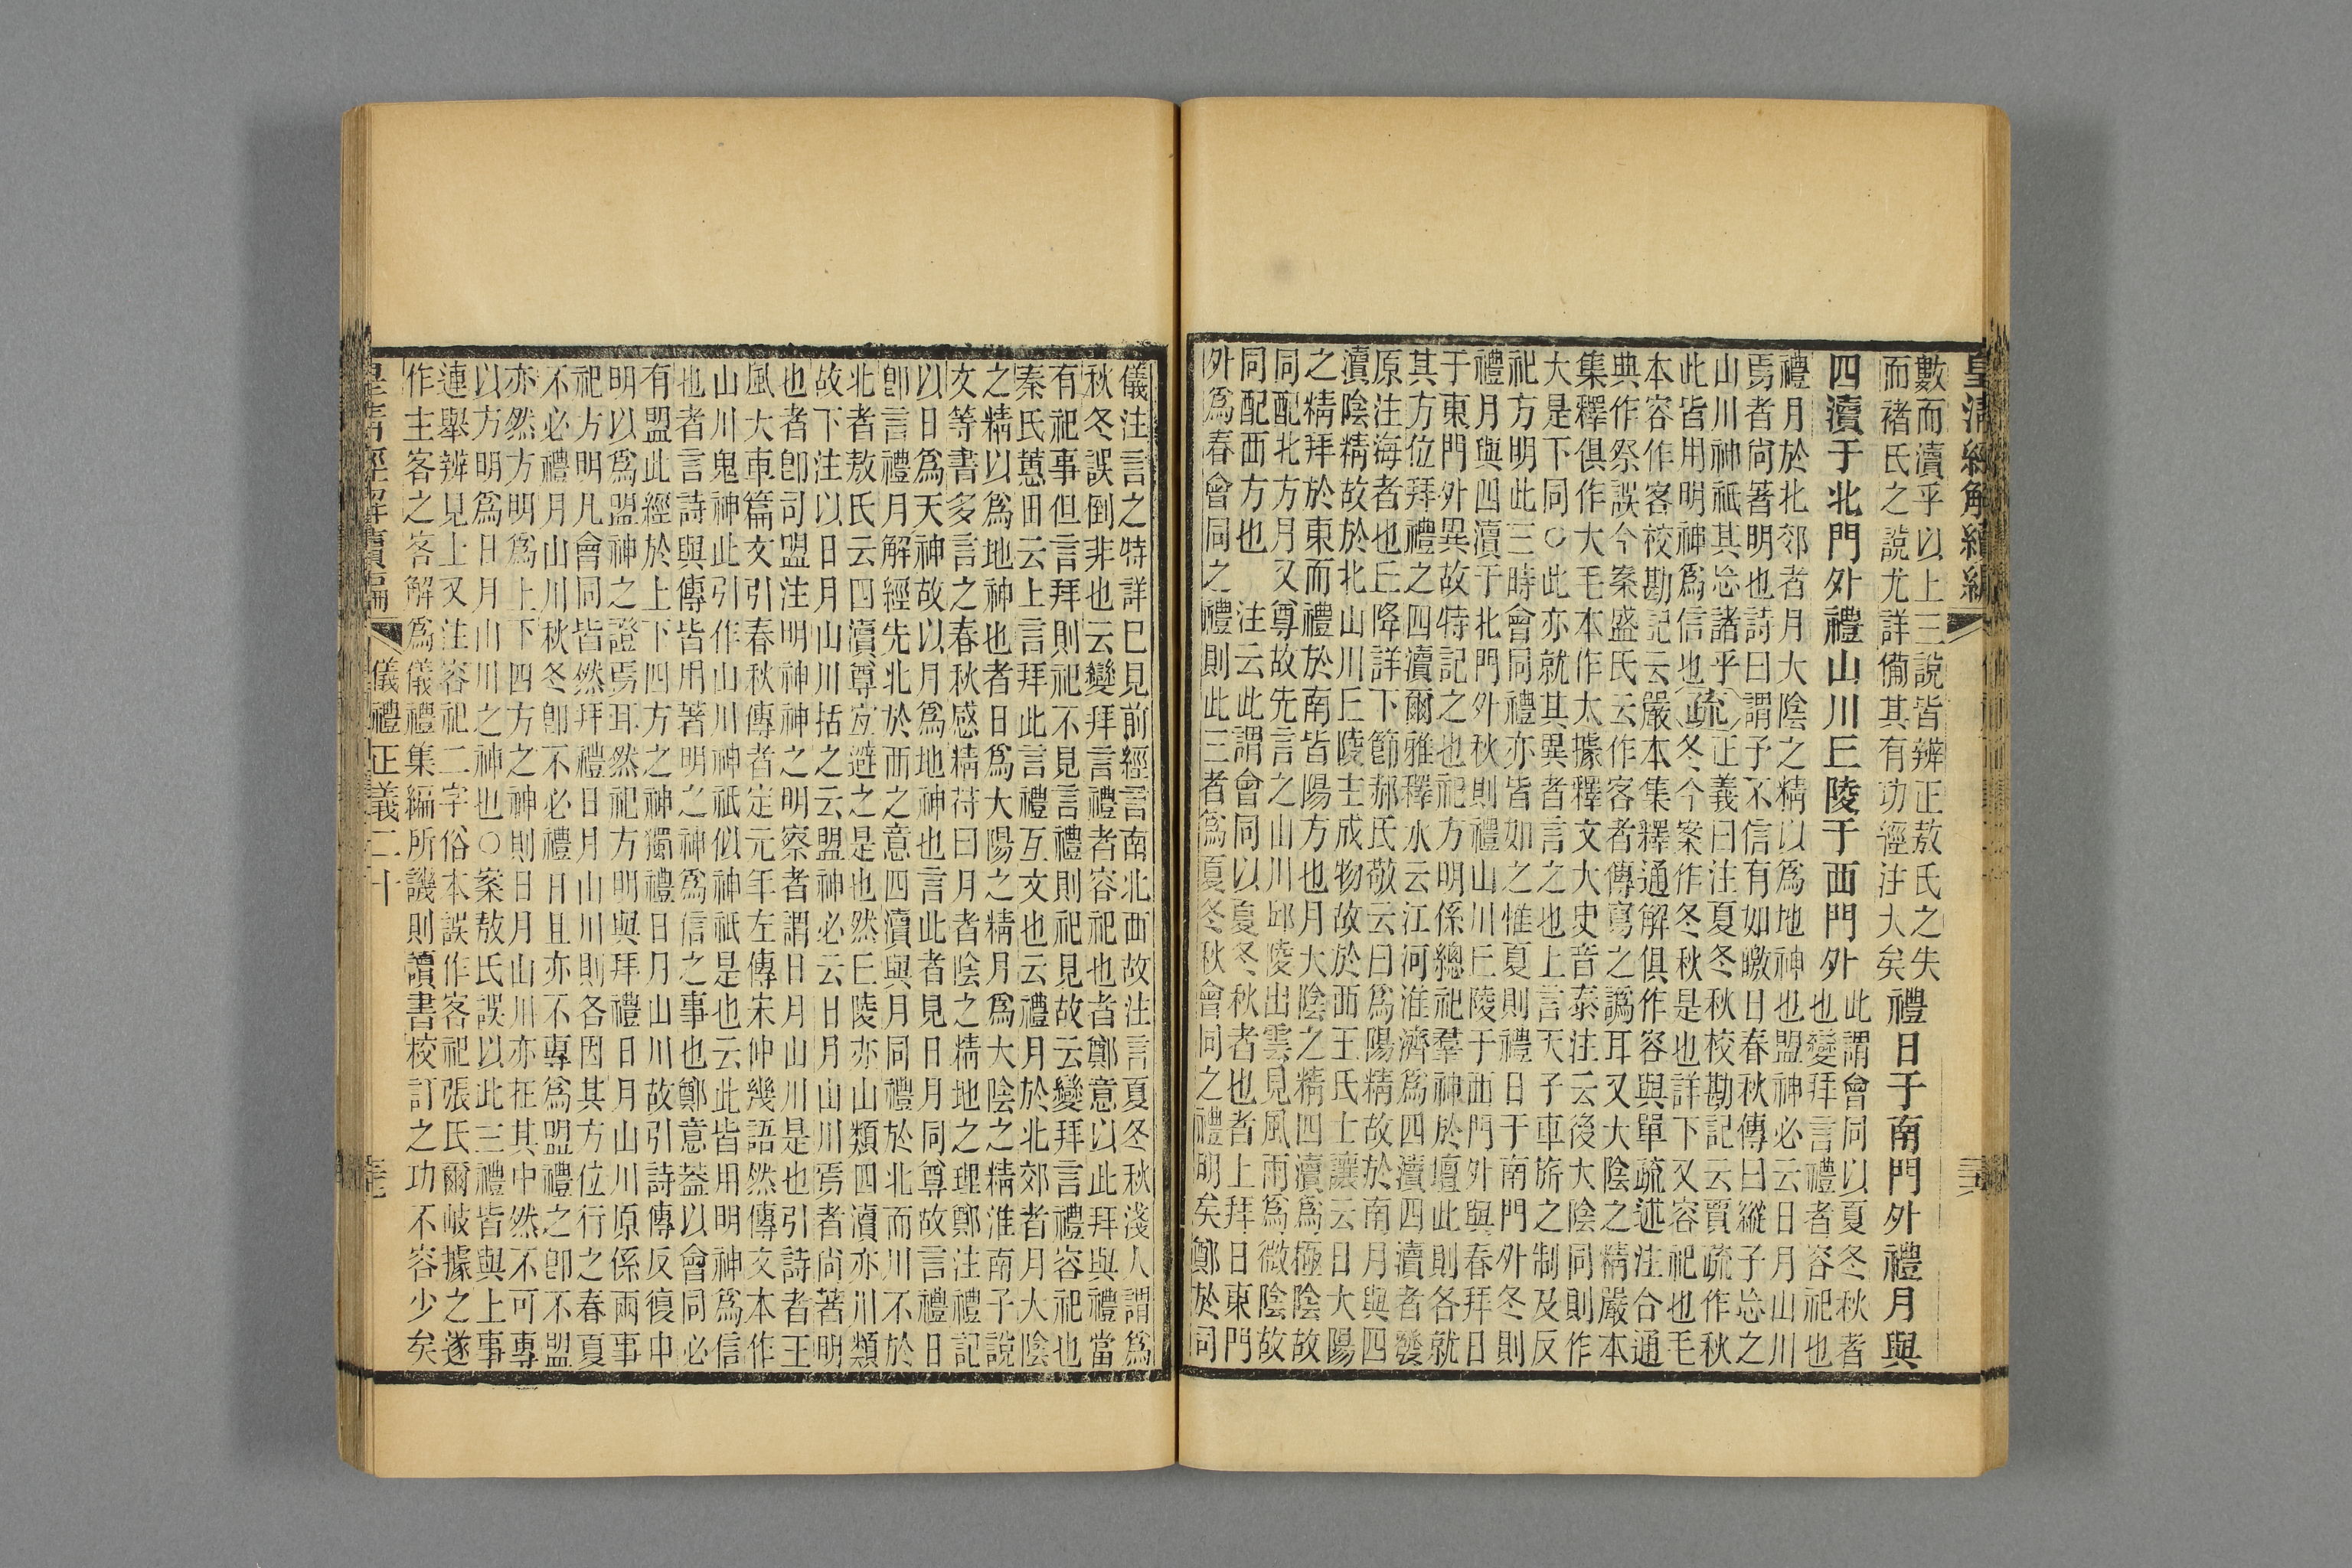 皇清經解續編
數而瀆乎以上三說皆辨正敖氏之失
而褚氏之說尤詳備其有功經注大矣
禮日于南門外禮月與
四瀆于北門外禮山川丘陵于西門外
此謂會同以夏冬秋者
也變拜言禮者容祀也
禮月於北郊者月大陰之精以爲地神也盟神必云日月山川
焉者尚著明也詩曰謂予不信有如皦日春秋傳曰縱子忘之
山川神祇其忘諸乎
此皆用明神爲信也
疏
正義曰注夏冬秋校勘記云賈疏作秋
冬今案作冬秋是也詳下又容祀也毛
本容作客校勘記云嚴本集釋通解俱作容與單疏述注合通
典作祭誤今案盛氏云作客者傳寫之譌耳又大陰之精嚴本
集釋俱作大毛本作太據釋文大史音泰注云後大陰同則作
大是下同○此亦就其異者言之也上言天子車旂之制及反
祀方明此三時會同禮亦皆如之惟夏則禮日于南門外冬則
禮月與四瀆于北門外秋則禮山川丘陵于西門外與春拜日
于東門外異故特記之也祀方明係總祀羣神於壇此則各就
其方位拜禮之四瀆爾雅釋水云江河淮濟爲四瀆四瀆者發
原注海者也丘降詳下節郝氏敬云曰爲陽精故於南月與四
瀆陰精故於北山川丘陵主成物故於西王氏士讓云日大陽
之精拜於東而禮於南皆陽方也月大陰之精四瀆爲極陰故
同配北方月又尊故先言之山川邱陵出雲見風雨爲微陰故
同配西方也 注云此謂會同以夏冬秋者也者上拜日東門
外爲春會同之禮則此三者爲夏冬秋會同之禮明矣鄭於同
儀注言之特詳已見前經言南北西故注言夏冬秋淺人謂爲
秋冬誤倒非也云變拜言禮者容祀也者鄭意以此拜與禮當
有祀事但言拜則祀不見言禮則祀見故云變拜言禮容祀也
秦氏蕙田云上言拜此言禮互文也云禮月於北郊者月大陰
之精以爲地神也者日爲大陽之精月爲大陰之精淮南子說
文等書多言之春秋感精苻曰月者陰之精地之理鄭注禮記
以日爲天神故以月爲地神也言此者見日月同尊故言禮日
卽言禮月解經先北於西之意四瀆與月同禮於北而川不於
北者敖氏云四瀆尊宜避之是也然丘陵亦山類四瀆亦川類
故下注以日月山川括之云盟神必云日月山川焉者尚著明
也者卽司盟注明神神之明察者謂日月山川是也引詩者王
風大車篇文引春秋傳者定元年左傳宋仲幾語然傳文本作
山川鬼神此引作山川神祇似神祇是也云此皆用明神爲信
也者言詩與傳皆用著明之神爲信之事也鄭意葢以會同必
有盟此經於上下四方之神獨禮日月山川故引詩傳反復申
明以爲盟神之證焉耳然祀方明與拜禮日月山川原係兩事
祀方明凡會同皆然拜禮日月山川則各因其方位行之春夏
不必禮月山川秋冬卽不必禮日且亦不專爲盟禮之卽不盟
亦然方明爲上下四方之神則日月山川亦在其中然不可專
以方明爲日月山川之神也○案敖氏誤以此三禮皆與上事
連舉辨見上又注容祀二字俗本誤作客祀張氏爾岐據之遂
作主客之客解爲儀禮集編所譏則讀書校訂之功不容少矣
皇清經解續編 儀禮正義二十